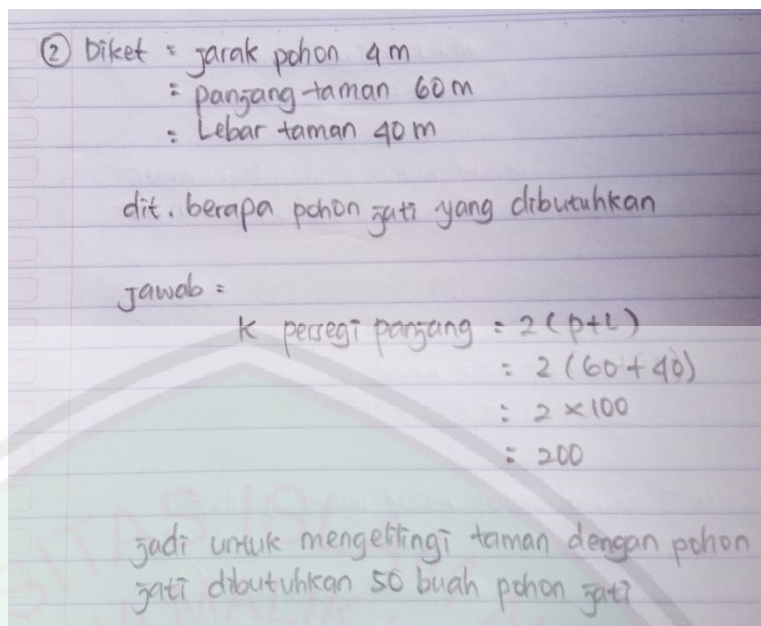 ② Diket : jarak pohon 4 m
= panjang taman 60 m
= Lebar taman 40 m
dit. berapa pohon jati yang dibutuhkan
Jawab =
K persegi panjang = 2 (p+l)
= 2 (60 + 40)
= 2 × 100
= 200
jadi untuk mengelilingi taman dengan pohon
jati dibutuhkan 50 buah pohon jati